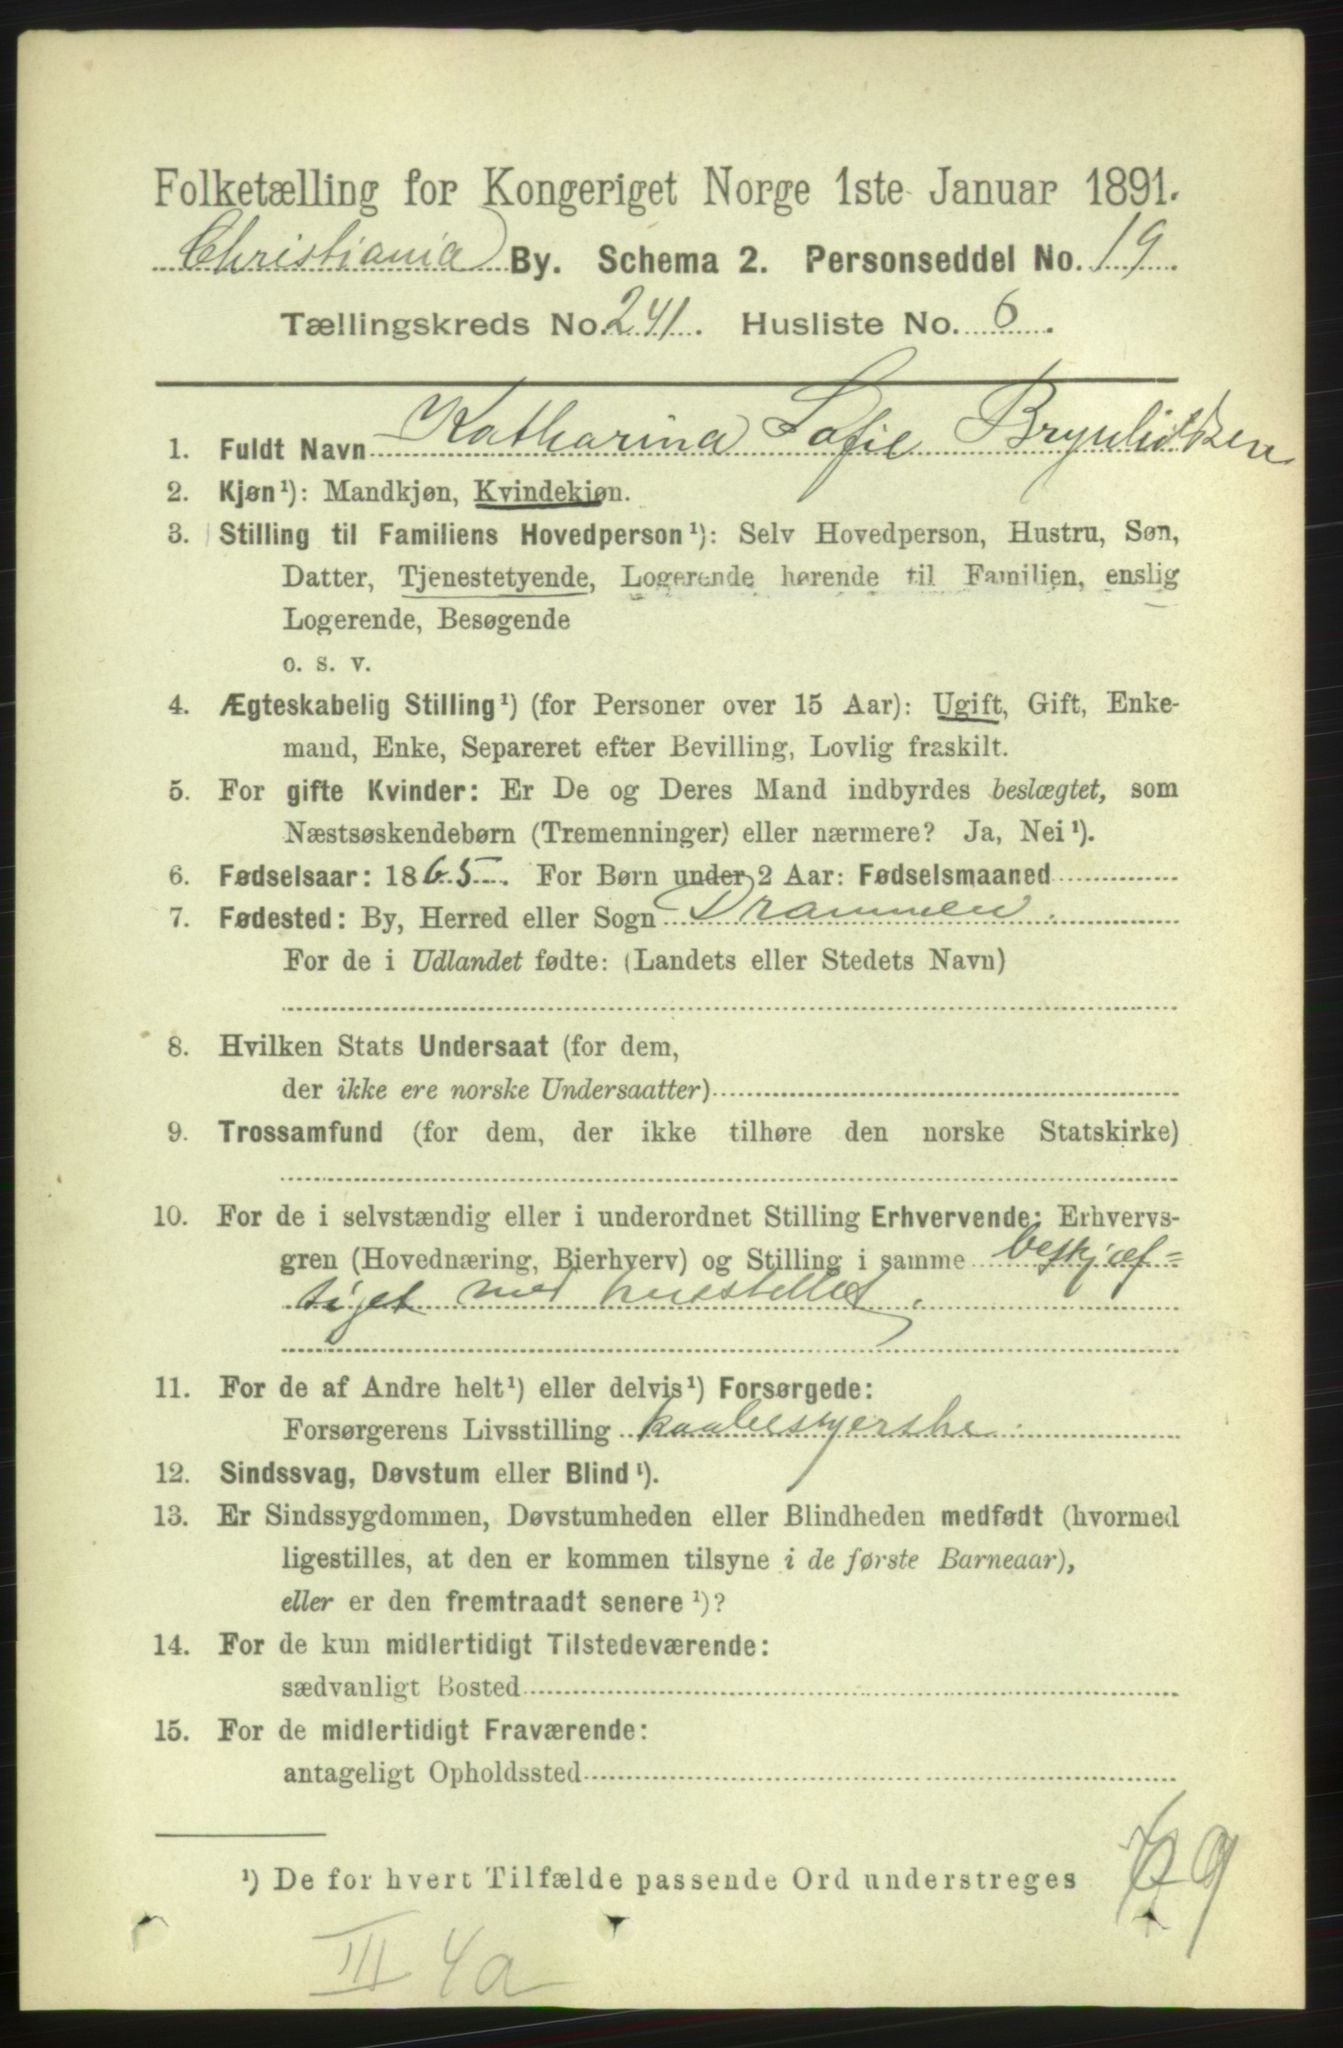 Folketælling for Kongeriget Norge 1ste Januar 1891.
Christiania By. Schema 2. Personseddel No. 19.
Tællingskreds No. 241. Husliste No. 6.
1. Fuldt Navn Katharina Sofie Brynhildsen
2. Kjøn¹): Mandkjøn, Kvindekjøn.
3. Stilling til Familiens Hovedperson¹): Selv Hovedperson, Hustru, Søn,
Datter, Tjenestetyende, Logerende hørende til Familien, enslig
Logerende, Besøgende
o. s. v.
4. Ægteskabelig Stilling¹) (for Personer over 15 Aar): Ugift, Gift, Enke-
mand, Enke, Separeret efter Bevilling, Lovlig fraskilt.
5. For gifte Kvinder: Er De og Deres Mand indbyrdes beslægtet, som
Næstsøskendebørn (Tremenninger) eller nærmere? Ja, Nei¹).
6. Fødselsaar: 1865. For Børn under 2 Aar: Fødselsmaaned
7. Fødested: By, Herred eller Sogn Drammen.
For de i Udlandet fødte: (Landets eller Stedets Navn)
8. Hvilken Stats Undersaat (for dem,
der ikke ere norske Undersaatter)
9. Trossamfund (for dem, der ikke tilhøre den norske Statskirke)
10. For de i selvstændig eller i underordnet Stilling Erhvervende: Erhvervs-
gren (Hovednæring, Bierhverv) og Stilling i samme beskjæf=
tiget med husstellet.
11. For de af Andre helt¹) eller delvis¹) Forsørgede:
Forsørgerens Livsstilling kaabesyerske.
12. Sindssvag, Døvstum eller Blind¹).
13. Er Sindssygdommen, Døvstumheden eller Blindheden medfødt (hvormed
ligestilles, at den er kommen tilsyne i de første Barneaar),
eller er den fremtraadt senere¹)?
14. For de kun midlertidigt Tilstedeværende:
sædvanligt Bosted
15. For de midlertidigt Fraværende:
antageligt Opholdssted
¹) De for hvert Tilfælde passende Ord understreges
III 4a